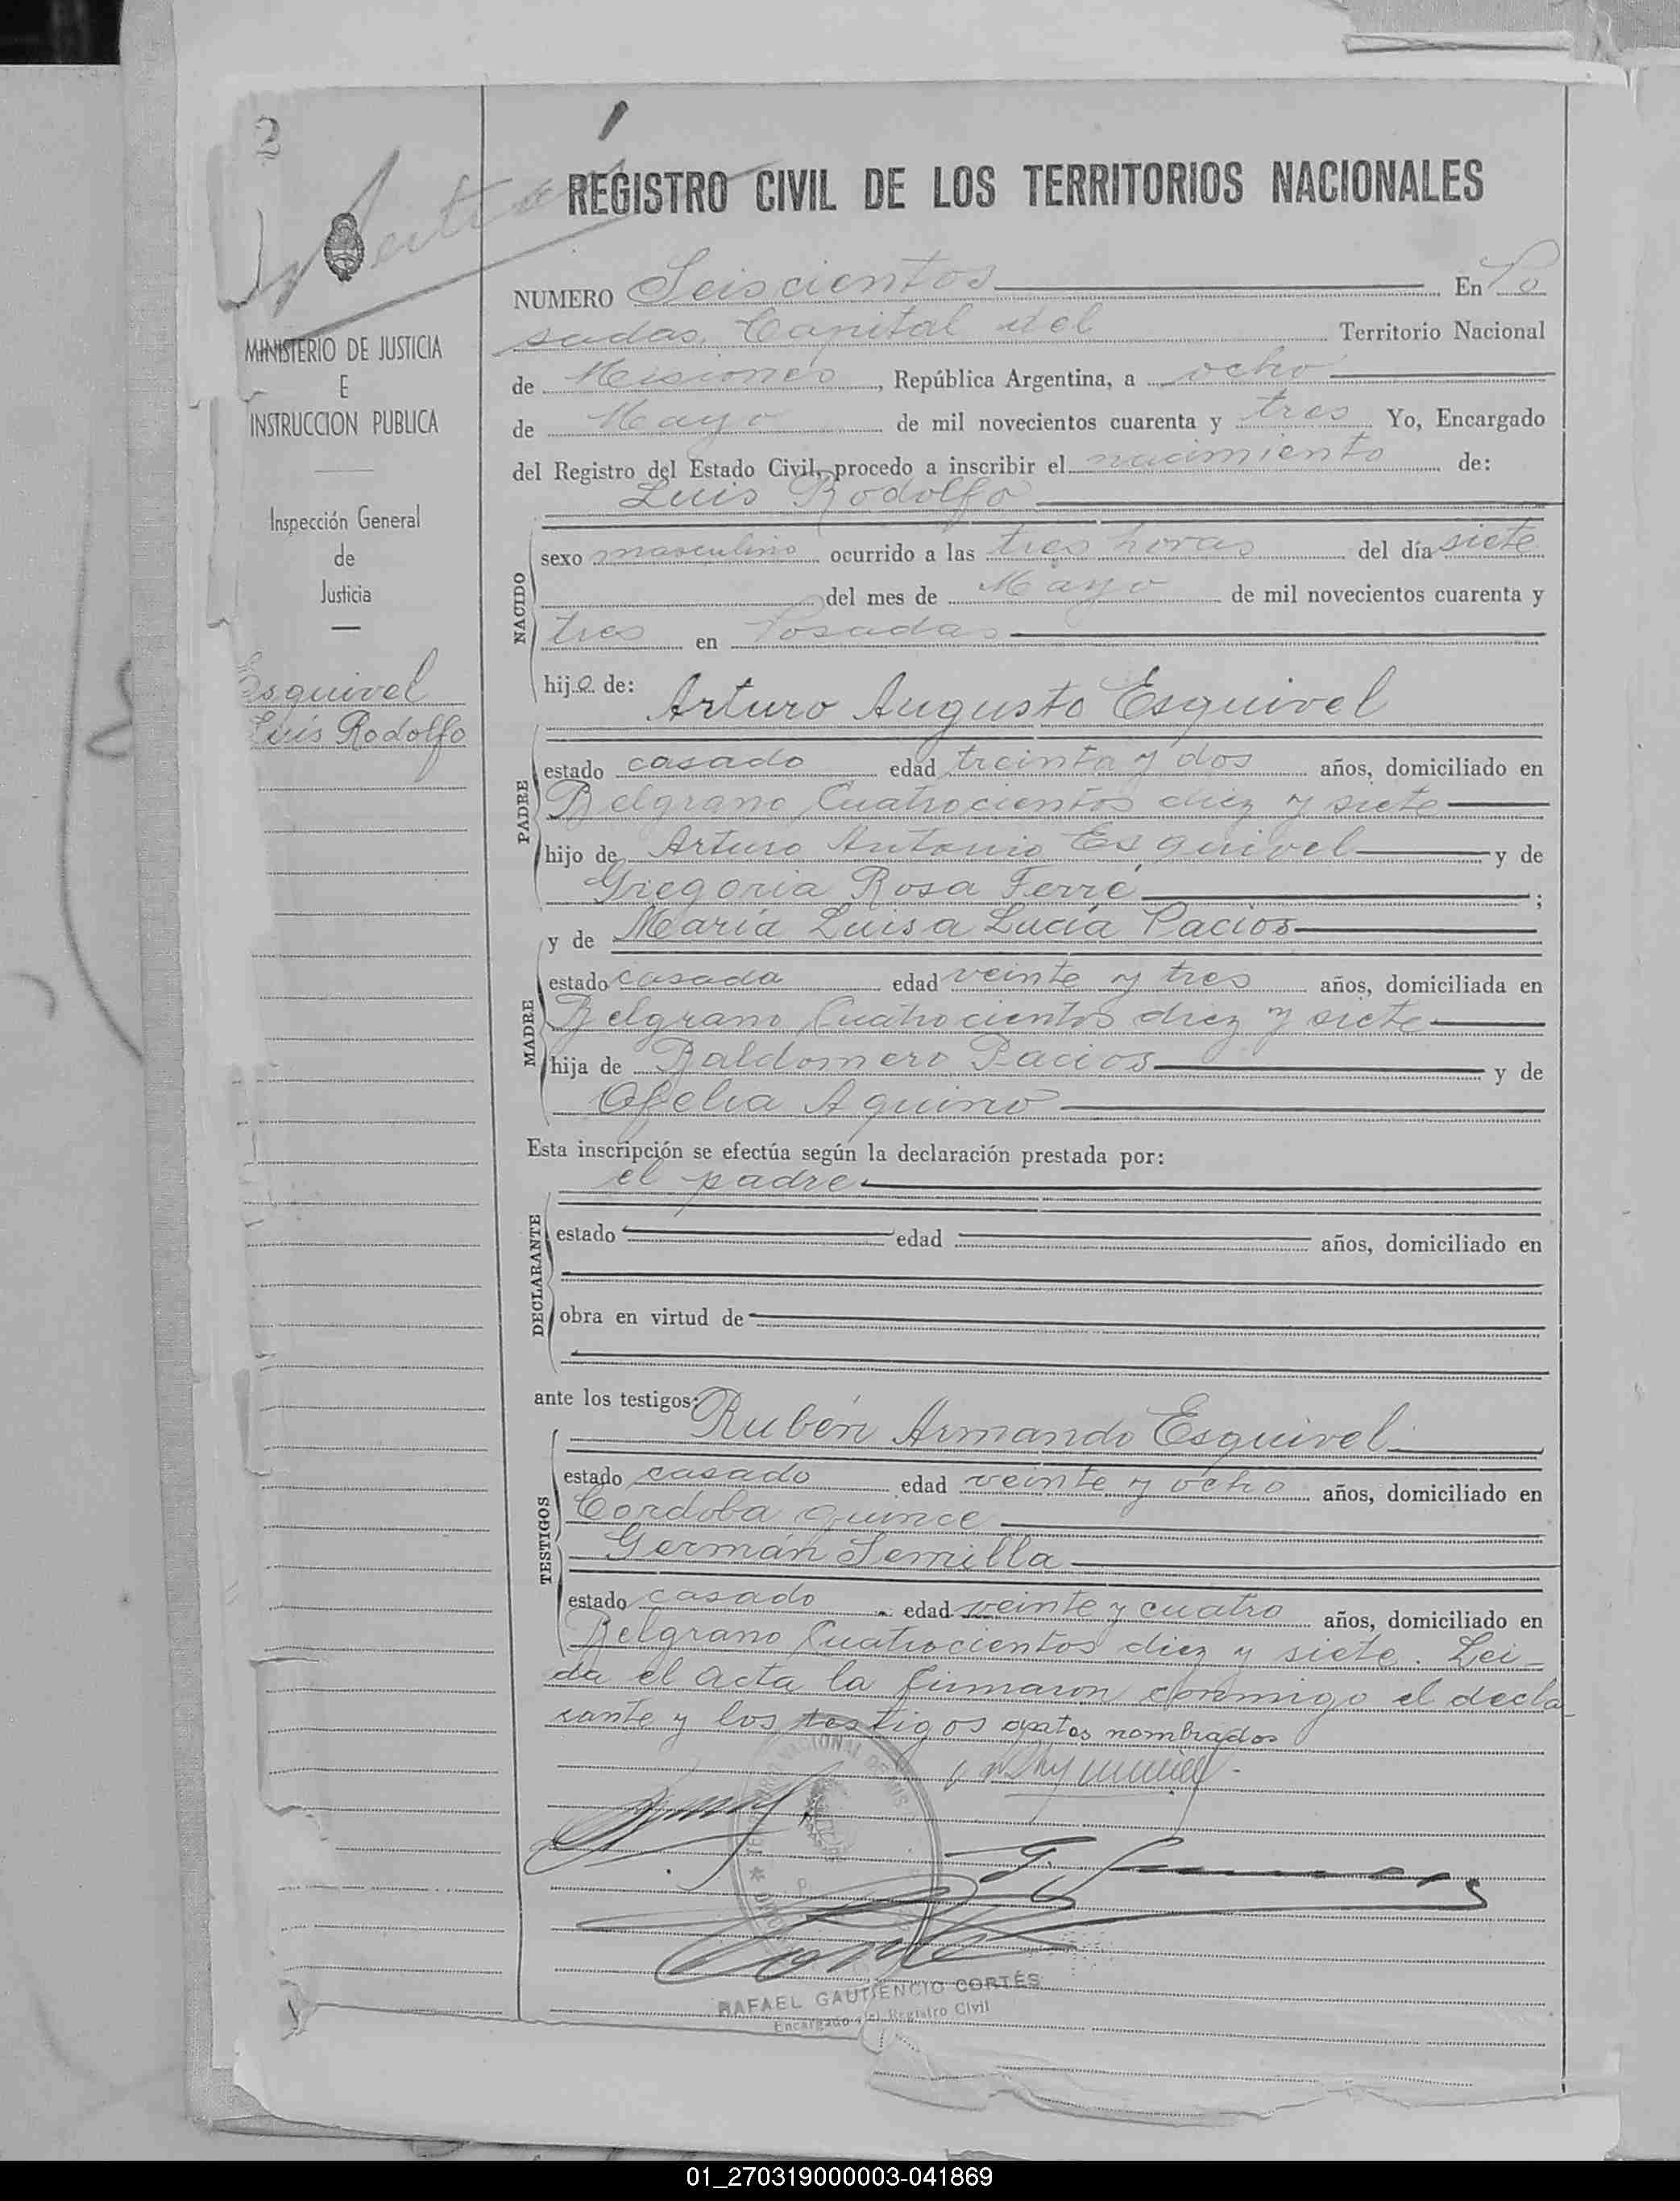 2
REGISTRO CIVIL DE LOS TERRITORIOS NACIONALES
MINISTERIO DE JUSTICIA
E
INSTRUCCION PUBLICA
Inspección General
de
Justicia
Esquivel
Luis Rodolfo
NUMERO Seiscientos En Po
sadas, Capital del Territorio Nacional
de Misiones, República Argentina, a ocho
de Mayo de mil novecientos cuarenta y tres Yo, Encargado
del Registro del Estado Civil, procedo a inscribir el nacimiento de:
Luis Rodolfo
NACIDO
sexo masculino ocurrido a las tres horas del día siete
del mes de Mayo de mil novecientos cuarenta y
tres en Posadas
hijo de: Arturo Augusto Esquivel
PADRE
estado casado edad treinta y dos años, domiciliado en
Belgrano Cuatrocientos diez y siete
hijo de Arturo Antonio Esquivel y de
Gregoria Rosa Ferré ;
y de María Luisa Lucía Pacios
MADRE
estado casada edad veinte y tres años, domiciliada en
Belgrano Cuatrocientos diez y siete
hija de Baldomero Pacios y de
Ofelia Aquino
Esta inscripción se efectúa según la declaración prestada por:
el padre
DECLARANTE
estado edad años, domiciliado en
obra en virtud de
ante los testigos: Rubén Armando Esquivel
TESTIGOS
estado casado edad veinte y ocho años, domiciliado en
Cordoba quince
Germán Semilla
estado casado edad veinte y cuatro años, domiciliado en
Belgrano Cuatrocientos diez y siete. Lei-
da el acta la firmaron conmigo el decla
rante y los testigos antes nombrados
RAFAEL GAUDENCIO CORTÉS
Encargado del Registro Civil
01_270319000003-041869